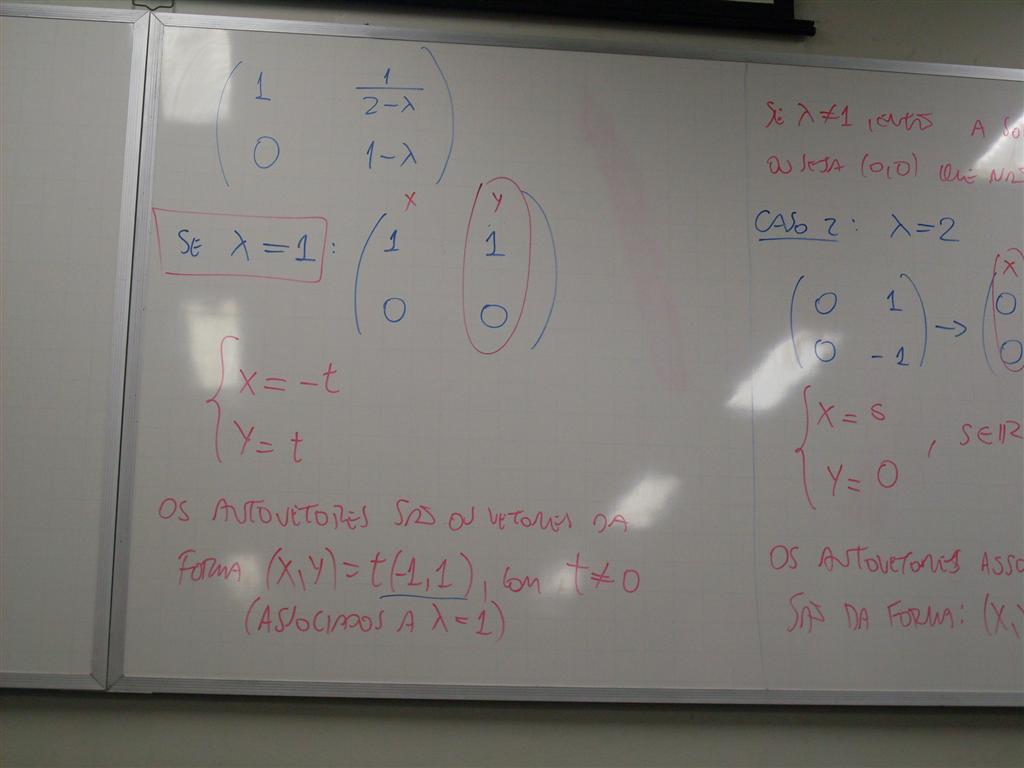 1 1/(2-λ)
0 1-λ
SE λ = 1 :
X Y
1 1
0 0
X = -t
Y = t
OS AUTOVETORES SÃO OS VETORES DA
FORMA (X,Y) = t(-1,1), COM t ≠ 0
(ASSOCIADOS A λ = 1)
SE λ ≠ 1, ENTÃO A SO
OU SEJA (0,0) QUE NÃO
CASO 2: λ = 2
0 1
0 -1
→
X
0
0
X = s
Y = 0
, S∈ℝ
OS AUTOVETORES ASSO
SÃO DA FORMA: (X,